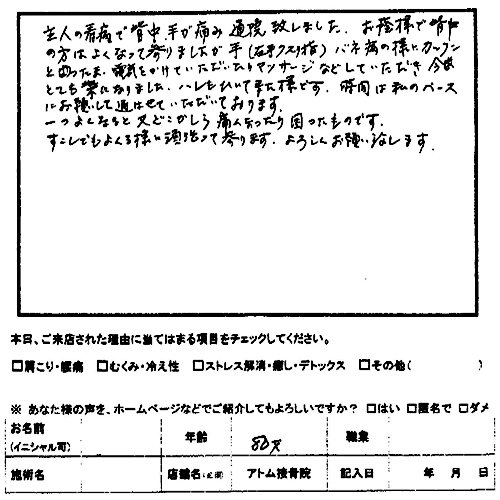 主人の看病で背中、手が痛み通院致しました。お陰様で背中
の方はよくなって参りましたが手(右手クスリ指)バネ病の様にカックン
と曲ったまゝ電気をかけていただいたりマッサージなどしていただき今は
とても楽になりました。ハレもひいて来た様です。時間は私のペース
にお願いして通はせていただいております。
一つよくなると又どこかしら痛くなったり困ったものです。
すこしでもよくなる様に頑張って参ります。よろしくお願い致します。
本日、ご来店された理由に当てはまる項目をチェックしてください。
□肩こり・腰痛 □むくみ・冷え性 □ストレス解消・癒し・デトックス □その他( )
※ あなた様の声を、ホームページなどでご紹介してもよろしいですか? □はい □匿名で □ダメ
お名前 年齢 80才 職業
(イニシャル可)
施術名 店舗名 アトム接骨院 記入日 年 月 日